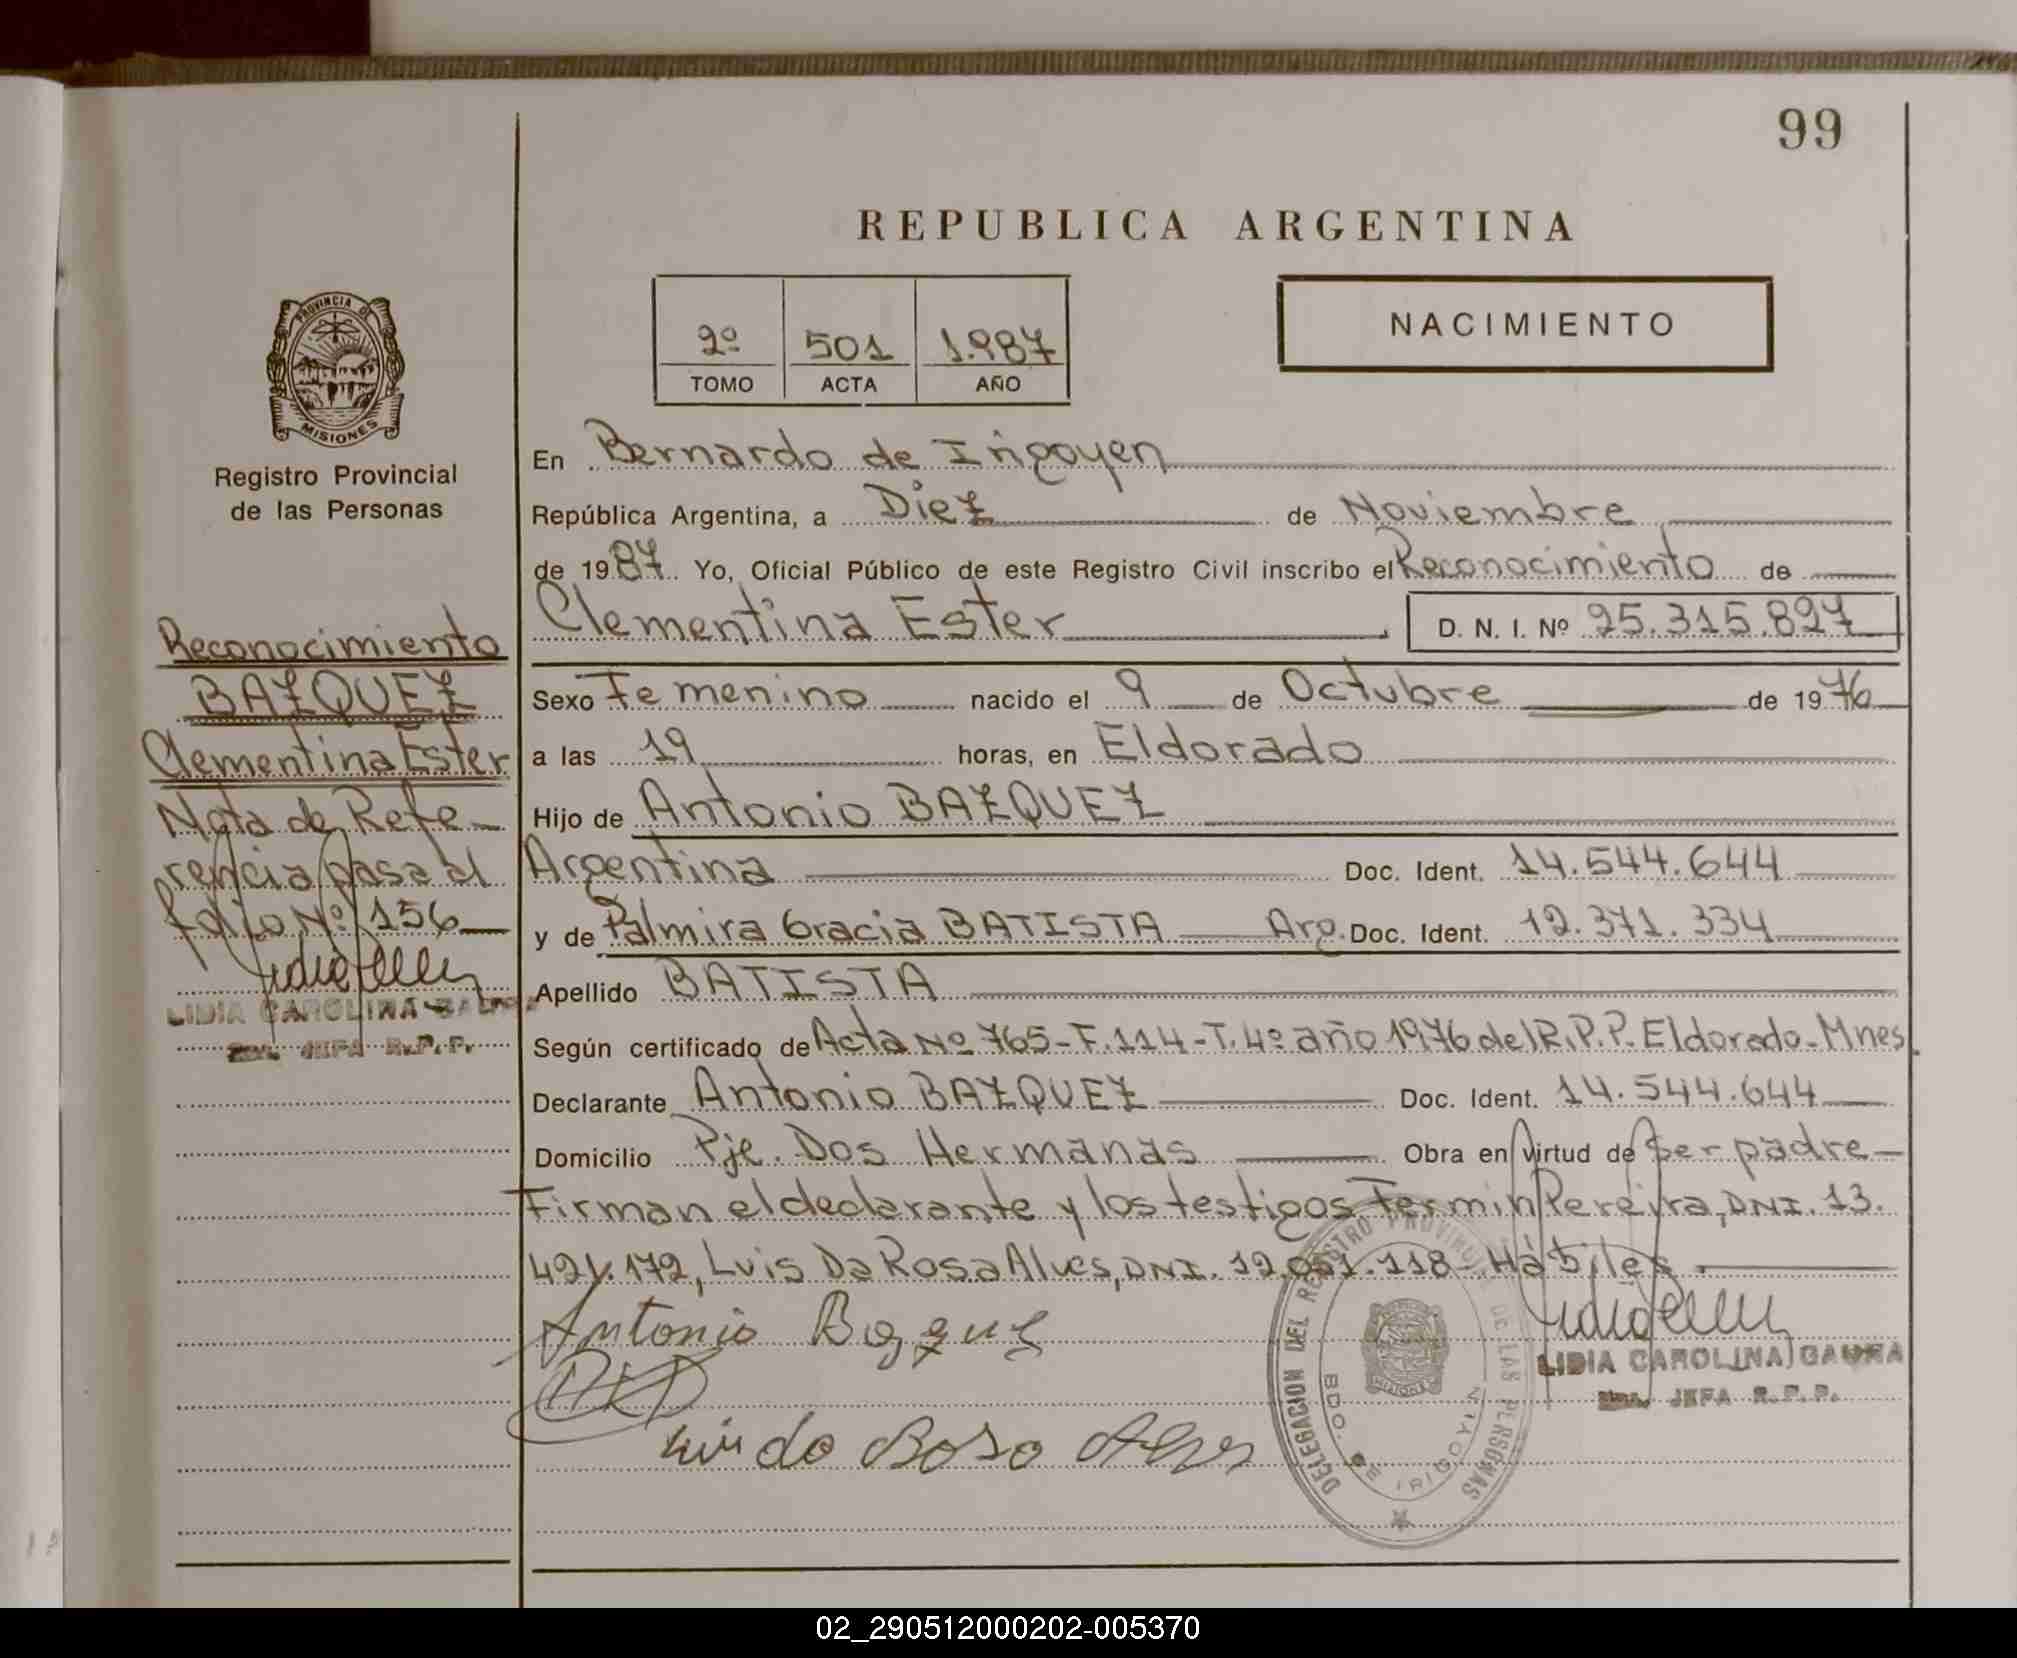 99
REPUBLICA ARGENTINA
2º 501 1.987
TOMO ACTA AÑO
NACIMIENTO
PROVINCIA DE
MISIONES
Registro Provincial
de las Personas
En Bernardo de Irigoyen
República Argentina, a Diez de Noviembre
de 1987. Yo, Oficial Público de este Registro Civil inscribo el Reconocimiento de
Clementina Ester D. N. I. Nº 25.315.827
Sexo Femenino nacido el 9 de Octubre de 1976
a las 19 horas, en Eldorado
Hijo de Antonio BAZQUEZ
Argentina Doc. Ident. 14.544.644
y de Palmira Gracia BATISTA Arg. Doc. Ident. 12.371.334
Apellido BATISTA
Según certificado de Acta Nº 765-F.114-T.4º año 1976 del R.P.P. Eldorado-Mnes.
Declarante Antonio BAZQUEZ Doc. Ident. 14.544.644
Domicilio Pje. Dos Hermanas Obra en virtud de Ser padre-
Firman el declarante y los testigos Fermin Pereira, DNI. 13.
421.172, Luis Da Rosa Alves, DNI. 12.051.118- Hábiles.
Antonio Bazquez
Luis da Rosa Alves
LIDIA CAROLINA GAUNA
JEFA R.P.P.
DELEGACION DEL REGISTRO PROVINCIAL DE LAS PERSONAS
BDO. DE IRIGOYEN
MISIONES
Reconocimiento
BAZQUEZ
Clementina Ester
Nota de Refe-
rencia pasa al
folio Nº 156
LIDIA CAROLINA GAUNA
JEFA R.P.P.
02_290512000202-005370